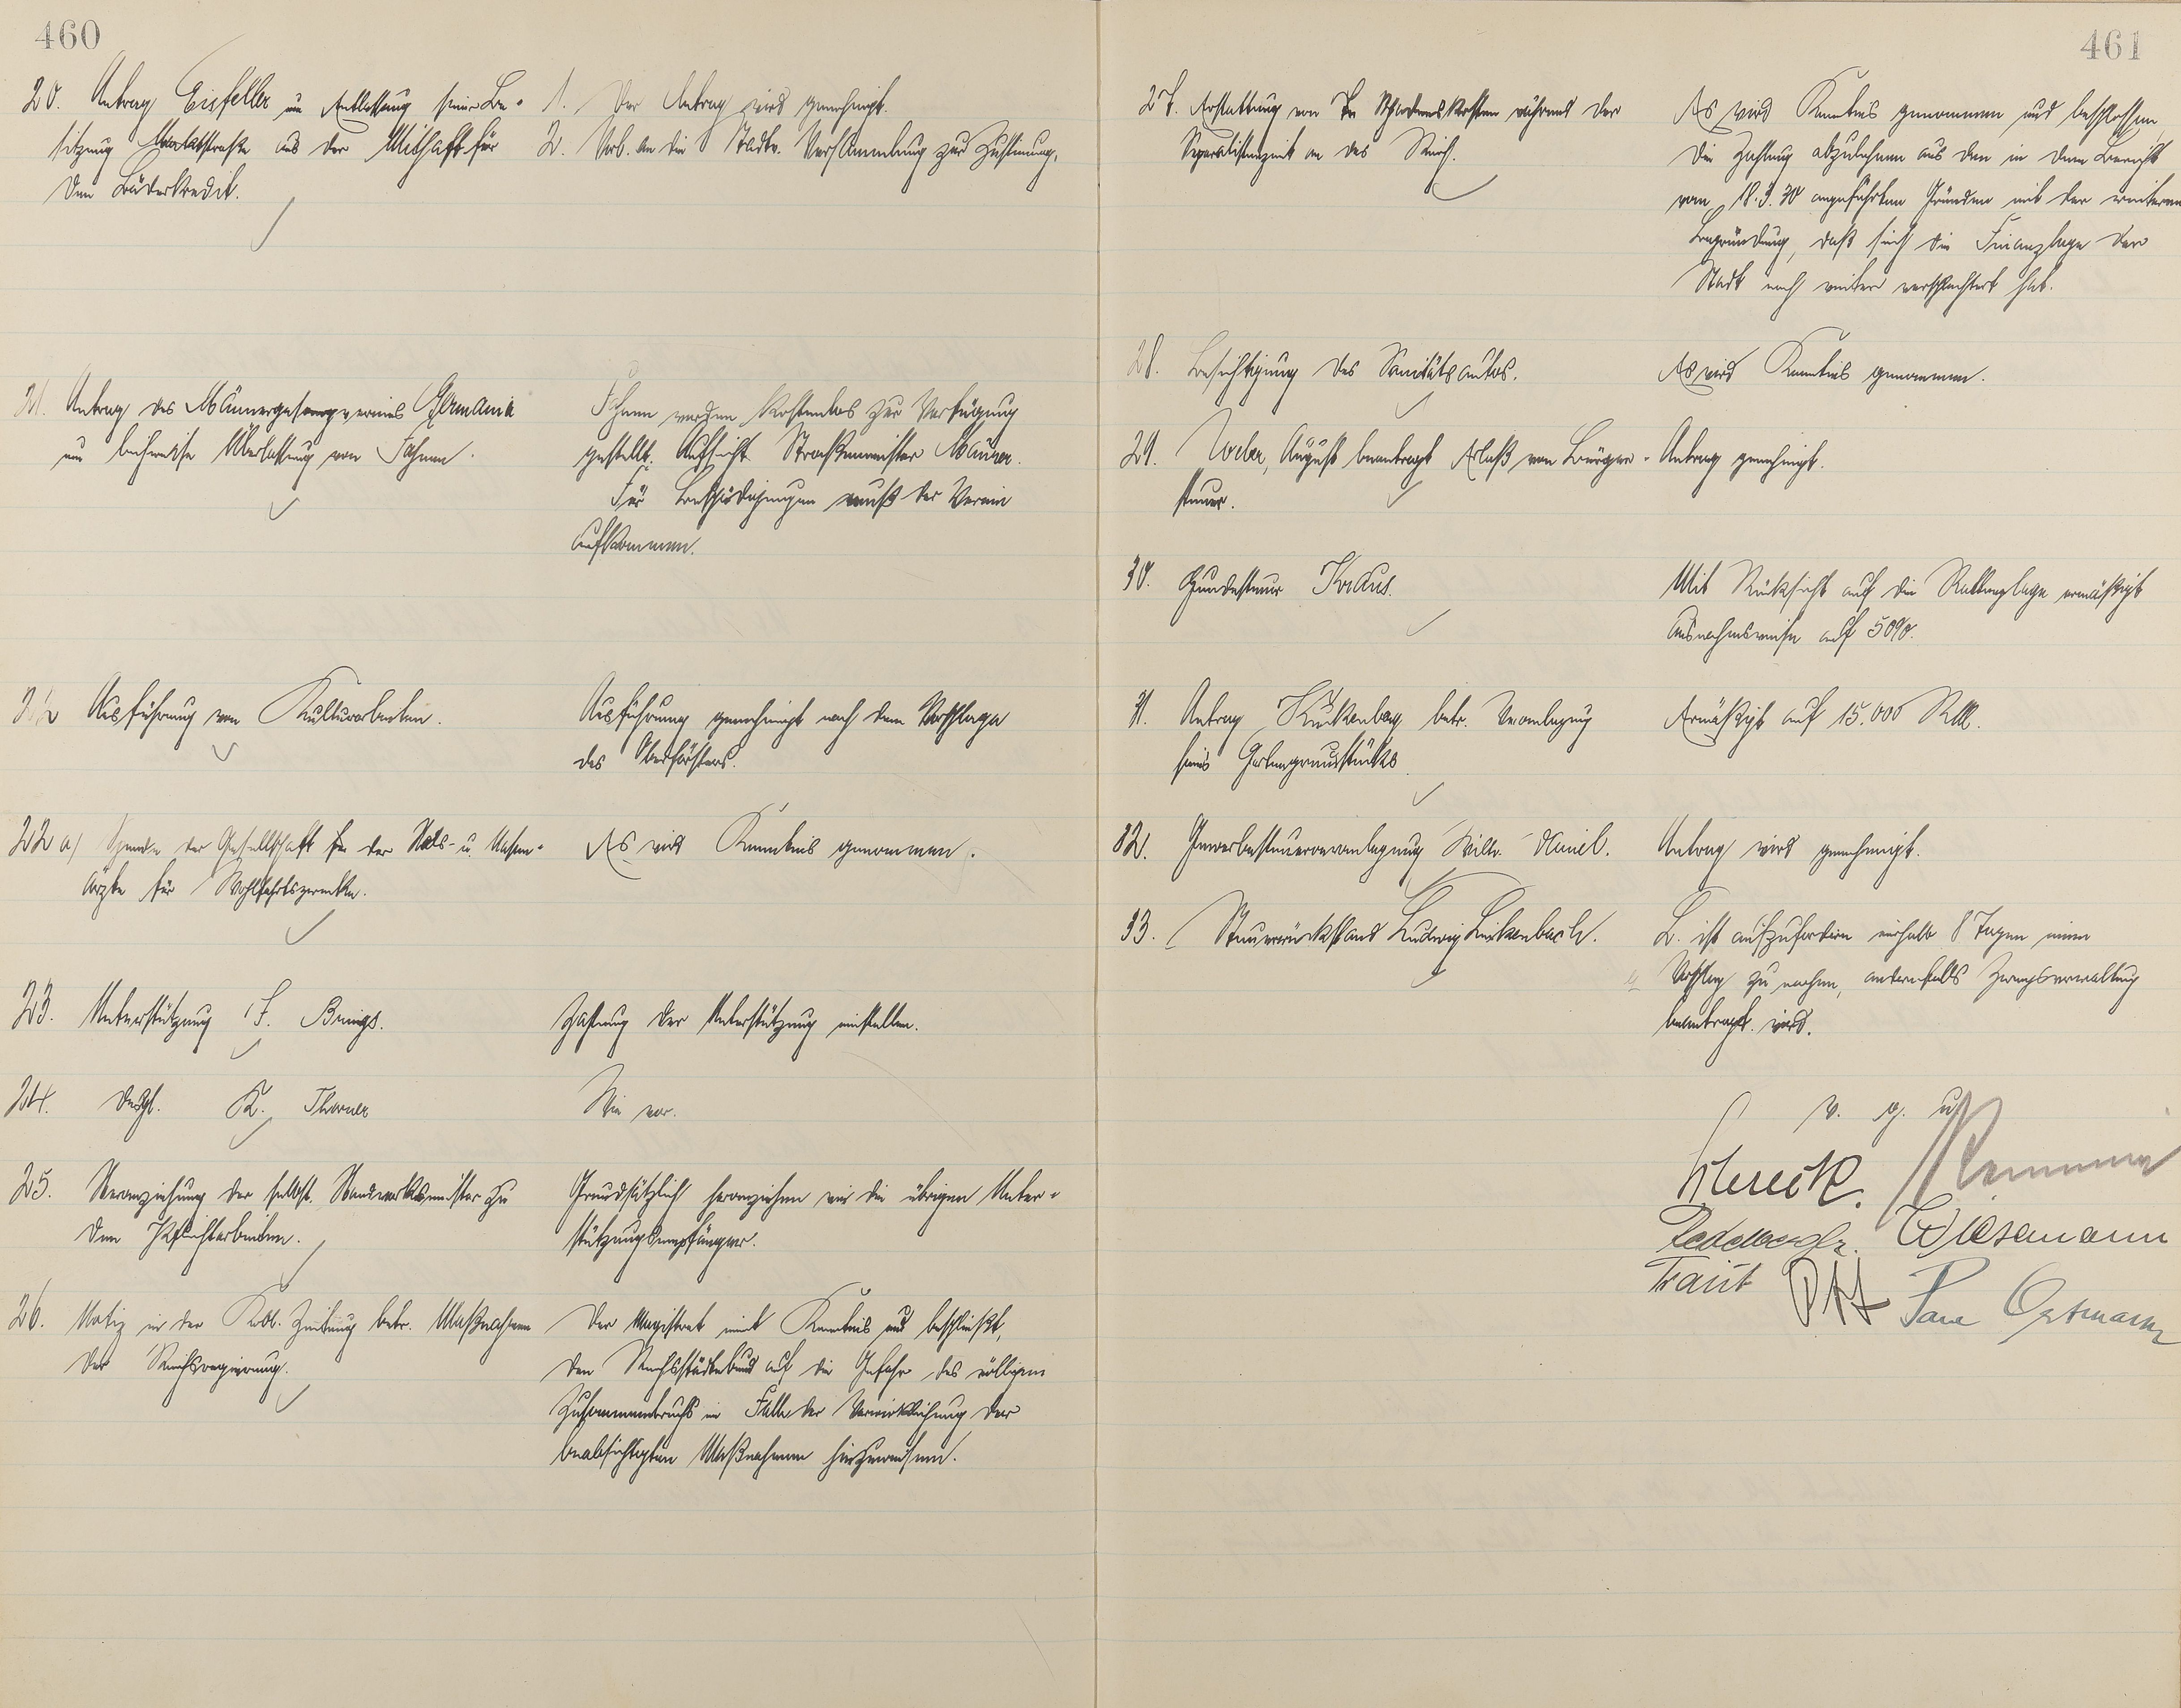 460
20. Antrag Eisfeller um Entlassung seiner Be-
sitzung Marktstraße aus der Mithaft für
den Bäderkredit.
1. Der Antrag wird genehmigt.
2. Vorl. an die Stadtv. Versammlung zur Zustimmung.
21. Antrag des Männergesangvereins Germania
um leihweise Überlassung von Fahnen.
Fahnen werden kostenlos zur Verfügung
gestellt. Aufsicht Straßenmeister
Für Beschädigungen muß der Verein
aufkommen.
22 Ausführung von Kulturarbeiten.
Ausführung genehmigt nach dem Vorschlage
des Oberförsters.
22 a) Spende der Gesellschaft der Hals- u. Nasen-
ärzte für Wohlfahrtszwecke.
Es wird Kenntnis genommen.
23. Unterstützung F. Brings.
Zahlung der Unterstützung einstellen.
24. desgl. K. Thorner
Wie vor.
25. Heranziehung der selbst. Handwerksmeister zu
den Pflichtarbeiten.
Grundsätzlich heranziehen wie die übrigen Unter-
stützungsempfänger.
26. Notiz in der Kobl. Zeitung betr. Maßnahmen
der Reichsregierung.
Der Magistrat nimt Kenntnis und beschließt,
den Reichsstädtebund auf die Gefahr des völligen
Zusammenbruchs im Falle der Verwirklichung der
beabsichtigten Maßnahmen hinzuweisen.
461
27. Erstattung von Schadenskosten während der
Separatistenzeit an das Reich.
Es wird Kenntnis genommen und beschlossen,
die Zahlung abzulehnen aus den in dem Bericht
vom 18.3.30 angeführten Gründen mit der weiteren
Begründung, daß sich die Finanzlage der
Stadt noch weiter verschlechtert hat.
28. Besichtigung des Sanitätsautos.
Es wird Kenntnis genommen.
29. Weber, August beantragt Erlaß von Bürger-
steuer.
Antrag genehmigt.
30. Hundesteuer Kraus.
Mit Rücksicht auf die Rattenplage ermäßigt
ausnahmsweise auf 50%.
31. Antrag betr. Veranlagung
seines Gartengrundstücks
Ermäßigt auf 15.000 RM.
32. Gewerbesteuerveranlagung Wilh. Daniel.
Antrag wird genehmigt.
33. Steuerrückstand Ludwig Linkenbach.
L. ist aufzufordern inerhalb 8 Tagen einen
Vorschlag zu machen, andernfalls Zwangsverwaltung
beantragt wird.
v. g. u.
Wiesemann
Traut
Ostmann